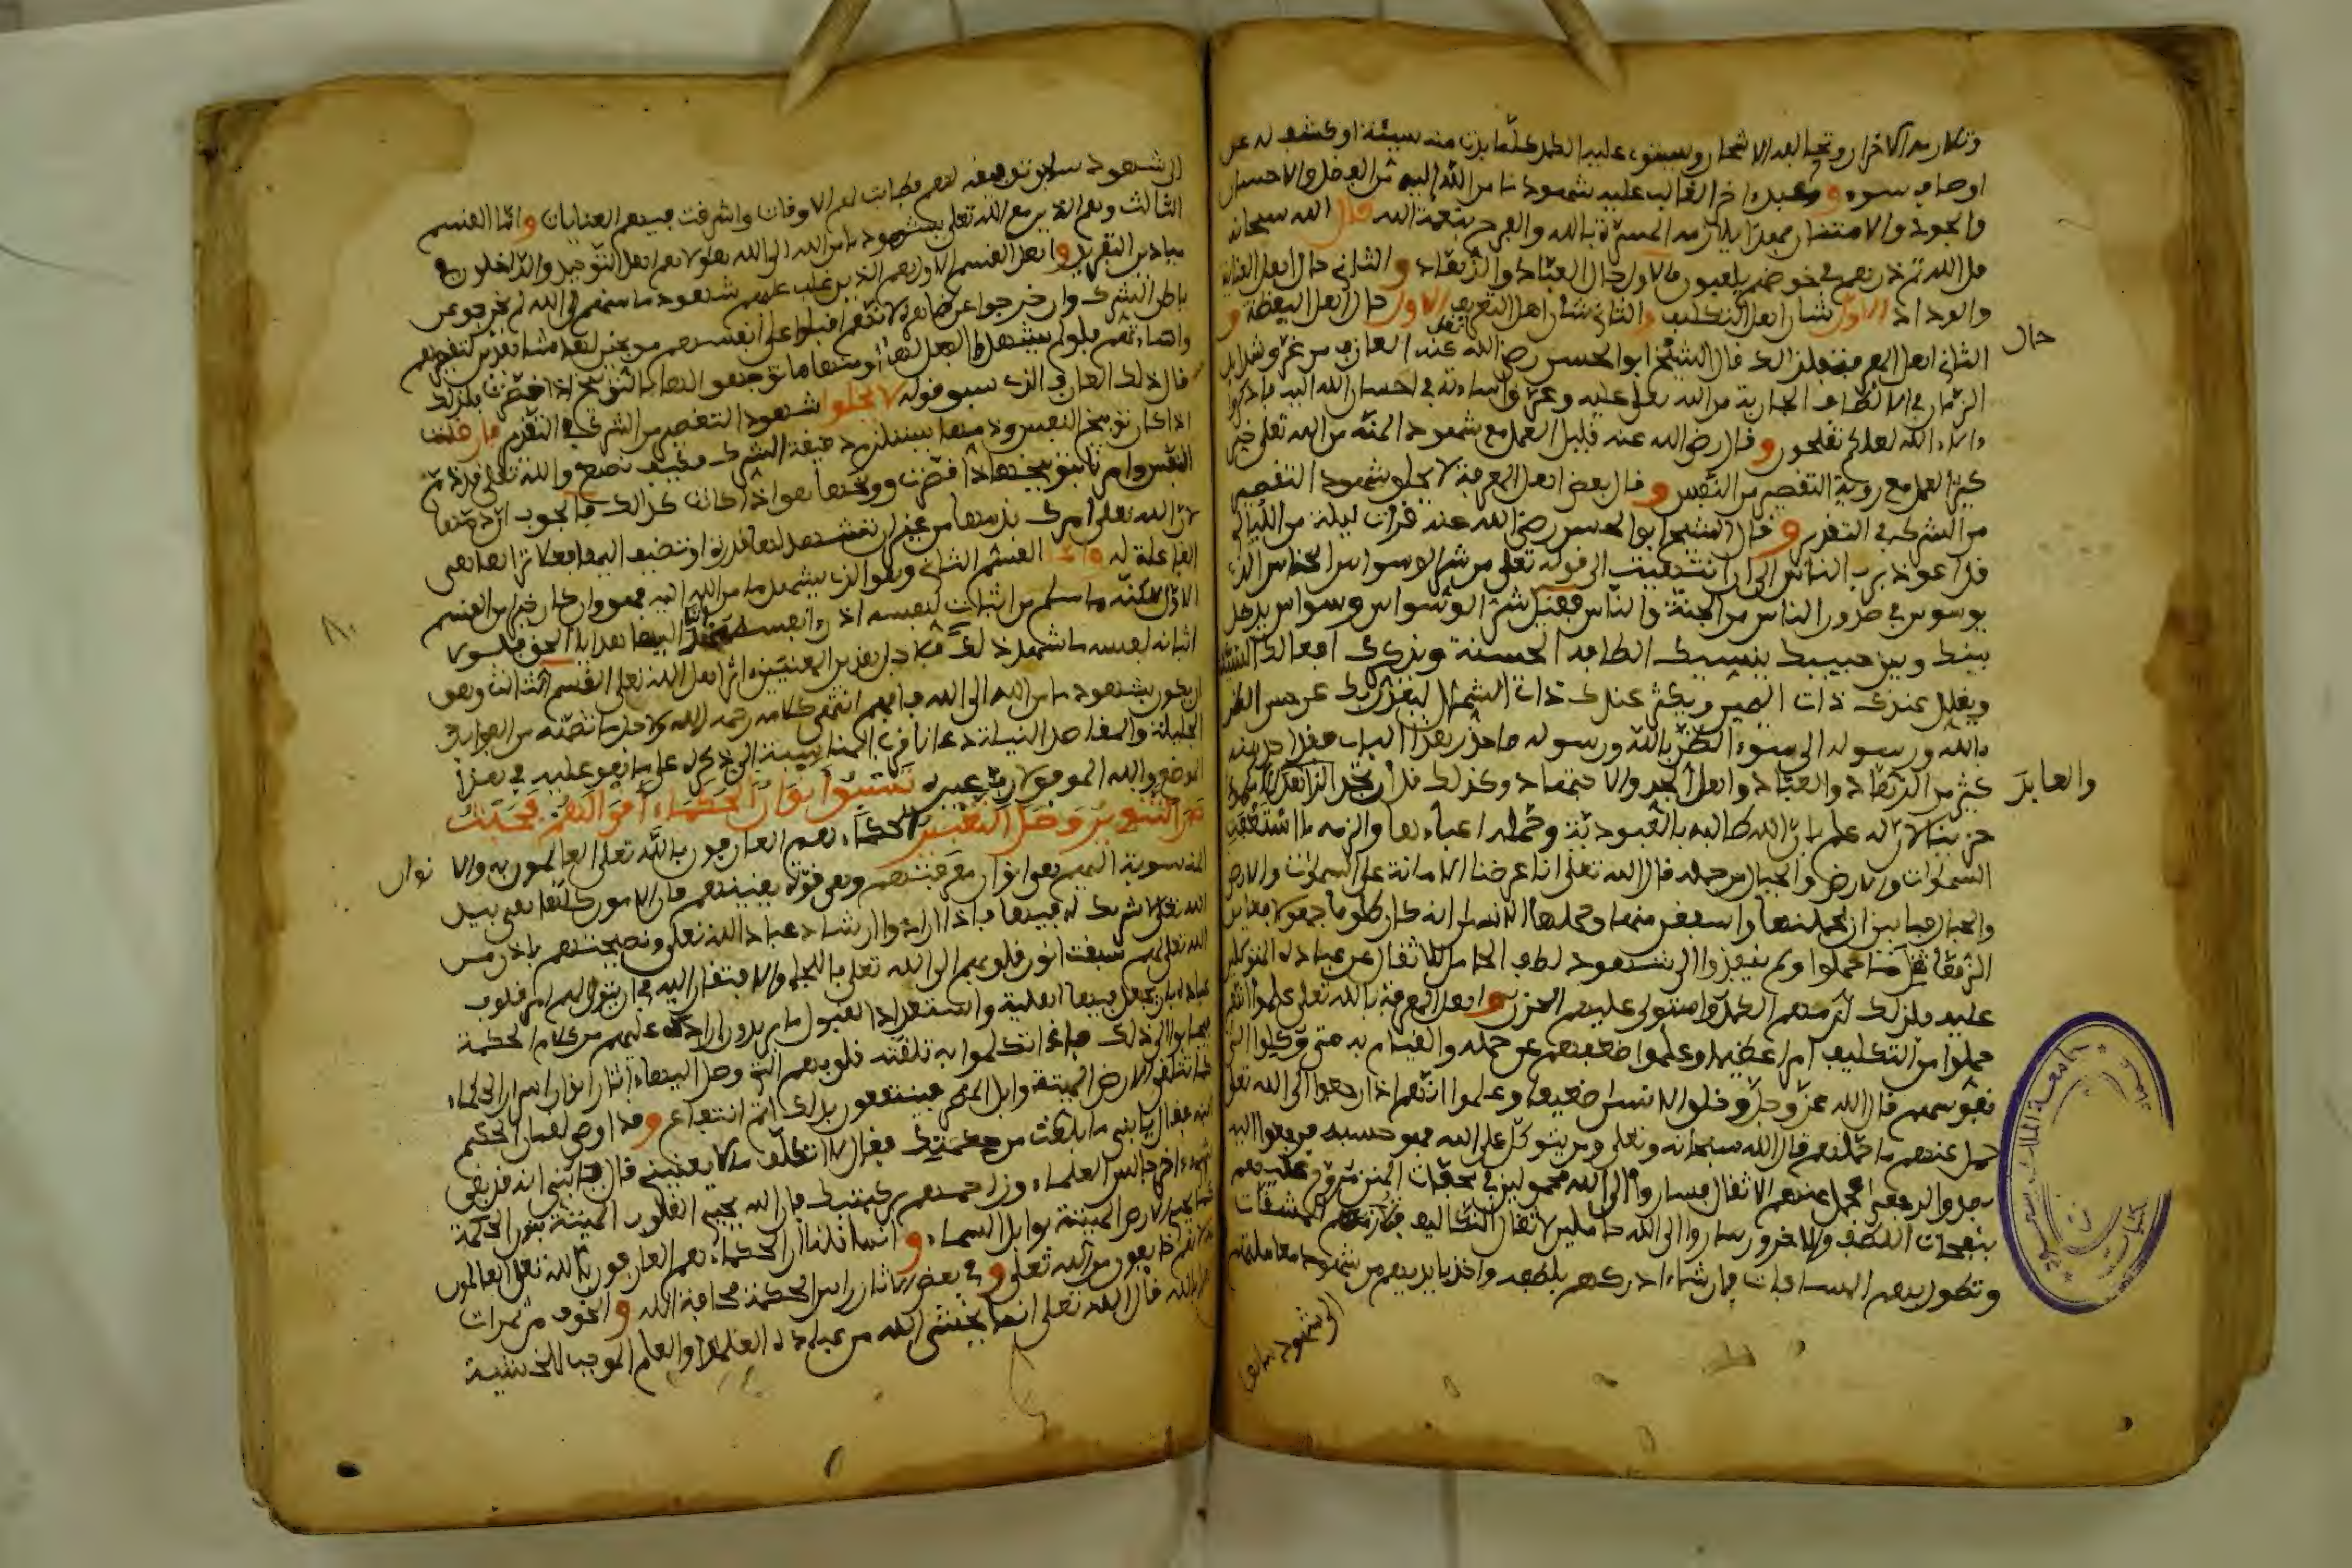 وتلازمه الاحزان وتحيا لعده الاشجار ويستولي عليه الكمد كلما بدت منه سيئة او كشف له عن
اوصاف سوء وعبد اخر الغالب عليه شهود ما من الله اليه من الفضل والاحسان
والجود والامتنان فهذا تلازمه المسرة بالله والفرح بنعمة الله قال الله سبحانه
قل الله ثم ذرهم في خوضهم يلعبون فالاول حال العباد والزهاد والثاني حال اهل العناية
والوداد الاول شان اهل التكليف والثاني شان اهل التعريف الاول حال اهل اليقظة و
الثاني اهل المعرفة فلذلك قال الشيخ ابو الحسن رضي الله عنه العارف من عرف شدايد
الزمان في الالطاف الجارية من الله تعالى عليه وعرف اساءته في احسان الله اليه فاذكروا
ءالاء الله لعلكم تفلحون وقال رضي الله عنه قليل العمل مع شهود المنة من الله تعالى خير من
كثير العمل مع رؤية التقصير من النفس وقال بعض اهل المعرفة لا يخلو شهود التقصير
من الشرك في التقدير وقال الشيخ ابو الحسن رضي الله عنه قرات ليلة من الليالي
قل اعوذ برب الناس الى ان انتهيت الى قوله تعالى من شر الوسواس الخناس الذي
يوسوس في صدور الناس من الجنة والناس فقيل شر الوسواس وسواس يدخل
بينك وبين حبيبك ينسيك الطافه الحسنة ويذكرك افعالك السيئة
ويقلل عندك ذات اليمين ويكثر عندك ذات الشمال ليعدل بك عن حسن الظن
بالله ورسوله الى سوء الظن بالله ورسوله فاحذر هذا الباب فقد اخذ منه
كثير من الزهاد والعباد واهل الجد والاجتهاد وكذلك قل ان تجد الزاهد والعابد الا مكمودا
حزينا لانه علم ان الله طالبه بالعبودية وحمله اعباءها والزمه ما اشتغفت
السموات والارض والجبال من حمله قال الله تعالى انا عرضنا الامانة على السموات والارض
والجبال فابين ان يحملنها واشفقن منها وحملها الانسان انه كان ظلوما جهولا فعاين
الزهاد ثقل ما حملوا ولم ينفذوا الى شهود لطف الحامل للاثقال عن عباده المتوكلين
عليه فلذلك لزمهم الكمد واستولى عليهم الحزن واهل المعرفة بالله تعالى علموا انهم
حملوا من التكليف امرا عظيما وعلموا ضعفهم عن حمله والقيام به متى وكلوا الى
نفوسهم قال الله عز وجل وخلق الانسان ضعيفا وعلموا انهم اذا رجعوا الى الله تعالى
حمل عنهم ما حملهم قال الله سبحانه وتعالى ومن يتوكل على الله فهو حسبه فرجعوا اليه
بصدق الرجعى فحمل عنهم الاثقال فساروا الى الله محمولين في محفات المنن تروح عليهم
بنفحات اللطف والاخرون ساروا الى الله حاملين لاثقال التكاليف فلازمتهم المشقات
وتطول بهم المسافات فان شاء ادركهم بلطفه واخذ بايديهم من شهود معاملتهم
حال
والعابد
الى شهود سابق
الى شهود سابق توفيقه لهم فطابت لهم الاوقات واشرقت فيهم العنايات واما القسم
الثالث وهم الذين مع الله تعالى بشهود ما من الله الى الله فهولاء هم اهل التوحيد والداخلون في
ميادين التفريد واهل القسم الاول هم الذين غلب عليهم شهود ما منهم الى الله لم يخرجوا عن
باطن الشرك وان خرجوا عن ظاهره لانهم اقبلوا على انفسهم موبخين لها مشاهدين لتقصيرهم
واساءتهم فلو لم يشهدوا الفعل لها او منها ما توجهوا اليها بالتوبيخ اذا قصرت فلذلك
قال ذلك العارف الذي سبق قوله لا يخلوا شهود التقصير من الشرك في التقدير فان قلت
اذا كان توبيخ النفس وذمها يستلزم دقيقة الشرك فكيف نصنع والله تعالى قد ذم
النفس وامرنا بتوبيخها اذا قصرت ووبخها هو اذا كانت كذلك فالجواب ان ذمتها
لان الله تعالى امرك بذمها من غير ان تشهد لها قدرة او تضيف اليها فعلا تراها هي
الفاعلة له واما القسم الثاني وهو الذي يشهد ما من الله اليه فهو وان كان خيرا من القسم
الاول لكنه ما سلم من اثبات لنفسه اذ راى نفسه مهدى اليها هدايا الحق فلولا
اثباته لنفسه ما شهد ذلك فلاجل هذين المعنيين اثر اهل الله تعالى القسم الثالث وهو
ان يكون بشهود ما من الله الى الله فافهم انتهى كلامه رحمه الله ولاجل ما تضمنه من الفوايد
الجليلة والمقاصد النبيلة دعانا قرب المناسبة الى ذكره على ما هو عليه في هذا
الموضع والله الموفق لا رب غيره تسبق انوار الحكماء اقوالهم فحيث
صار التنوير وصل التعبير الحكماء هم العارفون بالله تعالى العالمون به والا
المنسوبة اليهم هي انوار معرفتهم وهي قوة يقينهم فان الامور كلها هي بيد
الله تعالى لا شريك له فيها فاذا ارادوا ارشاد عباد الله تعالى ونصيحتهم باذن من
الله تعالى لهم سبقت انوار قلوبهم الى الله تعالى باللجا والافتقار اليه في ان يتولى لهم امر قلوب
عباده بان يجعل فيها اهلية واستعدادا لقبول ما يريدون ايراده عليهم من كلام الحكمة
فيجابوا الى ذلك فاذا تكلموا به تلقته قلوبهم التي وصل اليها اثار انوار اسرار الحكماء
كما تتلقى الارض الميتة وابل المطر فينتفعون بذلك اتم انتفاع وقد اوصى لقمان الحكيم
ابنه فقال يا بني ما بلغت من حكمتك فقال لا اتكلف ما لا يعنيني قال يا بني انه قد بقي
شيء اخر جالس العلماء وزاحمهم بركبتيك فان الله يحيي القلوب الميتة بنور الحكمة
كما يحيي الارض الميتة بوابل السماء وانما قلنا ان الحكماء هم العارفون بالله تعالى العالمون
لانهم خايفون من الله تعالى وفي بعض الاثار راس الحكمة مخافة الله والخوف من ثمرات
العلم بالله قال الله تعالى انما يخشى الله من عباده العلماء والعلم الموجب للخشية
نوار